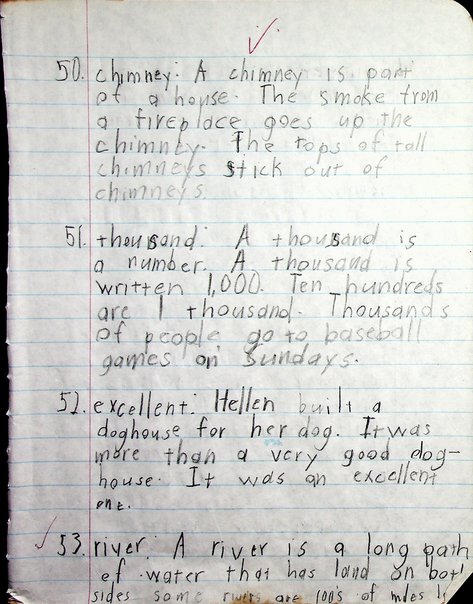 50. chimney: A chimney is part
of a house. The smoke from
a fireplace goes up the
chimney. The tops of tall
chimneys stick out of
chimneys.
51. thousand: A thousand is
a number. A thousand is
written 1,000. Ten hundreds
are 1 thousand. Thousands
of people go to baseball
games on Sundays.
52. excellent: Hellen built a
doghouse for her dog. It was
more than a very good dog-
house. It was an excellent
one.
53. river: A river is a long path
of water that has land on both
sides some rivers are 100s of miles